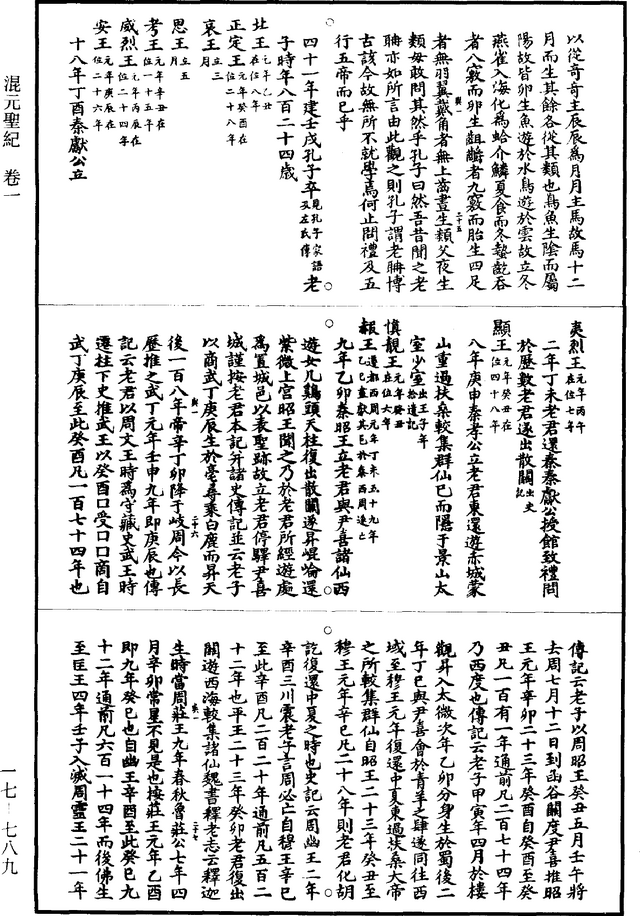 混元聖紀　卷一
一七—七八九
以從奇奇主辰辰爲月月主馬故馬十二
月而生其餘各從其類也鳥魚生陰而屬
陽故皆卵生魚遊於水鳥遊於雲故立冬
燕雀入海化爲蛤介鱗夏食而冬蟄齕吞
者八竅而卵生齟齬者九竅而胎生四足
者無羽翼戴角者無上齒晝生類父夜生
類母敢問其然乎孔子曰然吾昔聞之老
聃亦如所言由此觀之則孔子謂老聃博
古該今故無所不就學焉何止問禮及五
行五帝而已乎
四十一年建壬戌孔子卒見孔子家語及左氏傳老
子時年八百二十四歲
元王元年乙丑在位八年
正定王元年癸酉在位二十八年
哀王立三月
思王立五月
考王元年辛丑在位一十五年
威烈王元年丙辰在位二十四年
安王元年庚辰在位二十六年
十八年丁酉秦獻公立
夷烈王元年丙午在位七年
二年丁未老君還秦秦獻公授館致禮問
於歷數老君遂出散關出史記
顯王元年癸丑在位四十八年
八年庚申秦孝公立老君東還遊赤城蒙
山重過扶桑較集群仙已而隱于景山太
室少室出王子年拾遺記
慎靚王元年癸丑在位六年
赧王遷都西周元年丁未五十九年乙巳盡獻其邑於秦西周遂亡
九年乙卯秦昭王立老君與尹喜諸仙西
遊女几鷄頭天柱復出散關遂昇崐崘還
紫微上宮昭王聞之乃於老君所經遊處
爲置城邑以表聖跡故立老君停驛尹喜
城謹按老君本記并諸史傳記並云老子
以商武丁庚辰生於亳喜乘白鹿而昇天
後一百八年帝辛丁卯降于岐周今以長
歷推之武丁元年壬申九年即庚辰也傳
記云老君以周文王時爲守藏史武王時
遷柱下史推武王以癸酉口受口口商自
武丁庚辰至此癸酉凡一百七十四年也
傳記云老子以周昭王癸丑五月壬午將
去周七月十二日到函谷關度尹喜推昭
王元年辛卯二十三年癸酉自癸酉至癸
丑凡一百有一年通前凡二百七十四年
乃西度也傳記云老子甲寅年四月於樓
觀昇入太微次年乙卯分身生於蜀後二
年丁巳與尹喜會於青羊之肆遂同往西
域至穆王元年復還中夏東過扶桑大帝
之所較集群仙自昭王二十三年癸丑至
穆王元年辛巳凡二十八年則老君化胡
訖復還中夏之時也史記云周幽王二年
辛酉三川震老子言周必亡自穆王辛巳
至此辛酉凡二百二十年通前凡五百二
十二年也平王二十三年癸卯老君復出
關遊西海較集諸仙魏書釋老志云釋迦
生時當周莊王九年春秋魯莊公七年四
月辛卯常星不見是也按莊王元年乙酉
即九年癸巳也自幽王辛酉至此癸巳九
十二年通前凡六百一十四年而後佛生
至匡王四年壬子入滅周靈王二十一年